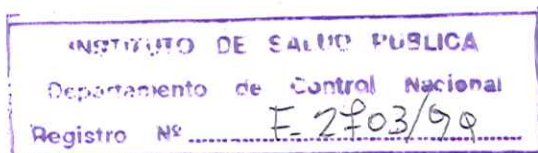 INSTITUTO DE SALUD PUBLICA
Departamento de Control Nacional
Registro Nº ........ F-2703/99